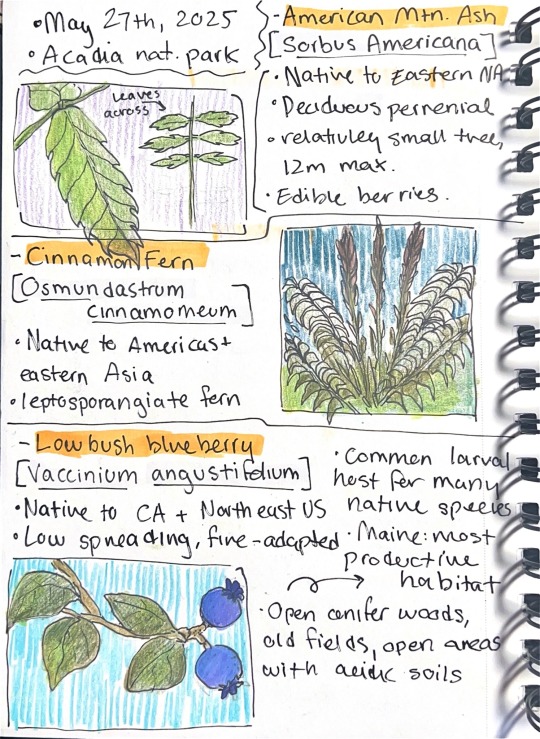 •May 27th, 2025
• Acadia nat. park
leaves
across
-American Mtn. Ash
[Sorbus Americana]
• Native to Eastern NA.
• Deciduous pernenial
• relatiuley small tree,
12m max.
• Edible berries.
-Cinnamon Fern
[Osmundastrum
cinnamomeum]
• Native to Americas+
eastern Asia
• leptosporangiate fern
- Lowbush blueberry
[Vaccinium angustifolium]
• Native to CA + North east US
• Low spreading, fire-adapted
• Common larval
host for many
native species
• Maine: most
productive
habitat
• Open conifer woods,
old fields, open areas
with acidic soils